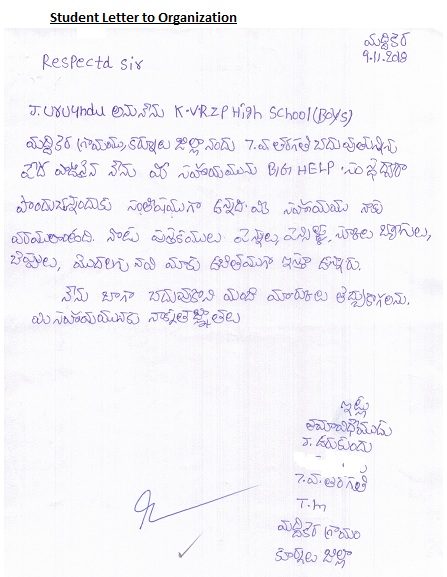 Student Letter to Organization
మద్దికెర
9.11.2018
Respectd sir
J. అను నేను K.VRZP High School (Boys)
మద్దికెర గ్రామము, కర్నూలు జిల్లా నందు 7.వ.తరగతి చదువుతున్న
పేద నేను మీ సహాయమును BIGI HELP సంస్థ ద్వారా
పొందుచున్నందుకు సంతోషముగా ఉన్నది. మీ సహాయము నాకు
నోటు పుస్తకములు పెన్నులు, పెన్సిల్స్, స్కూలు బ్యాగులు,
మొదలగు నవి మాకు ఉచితముగా ఇస్తూ ఉన్నారు.
నేను బాగా చదువుకొని మంచి మార్కులు తెచ్చుకొగలను.
మీ సహాయమునకు నా కృతజ్ఞతలు
ఇట్లు
తమ విధేయుడు
7.వ.తరగతి
T.m
మద్దికెర గ్రామం
కర్నూలు జిల్లా